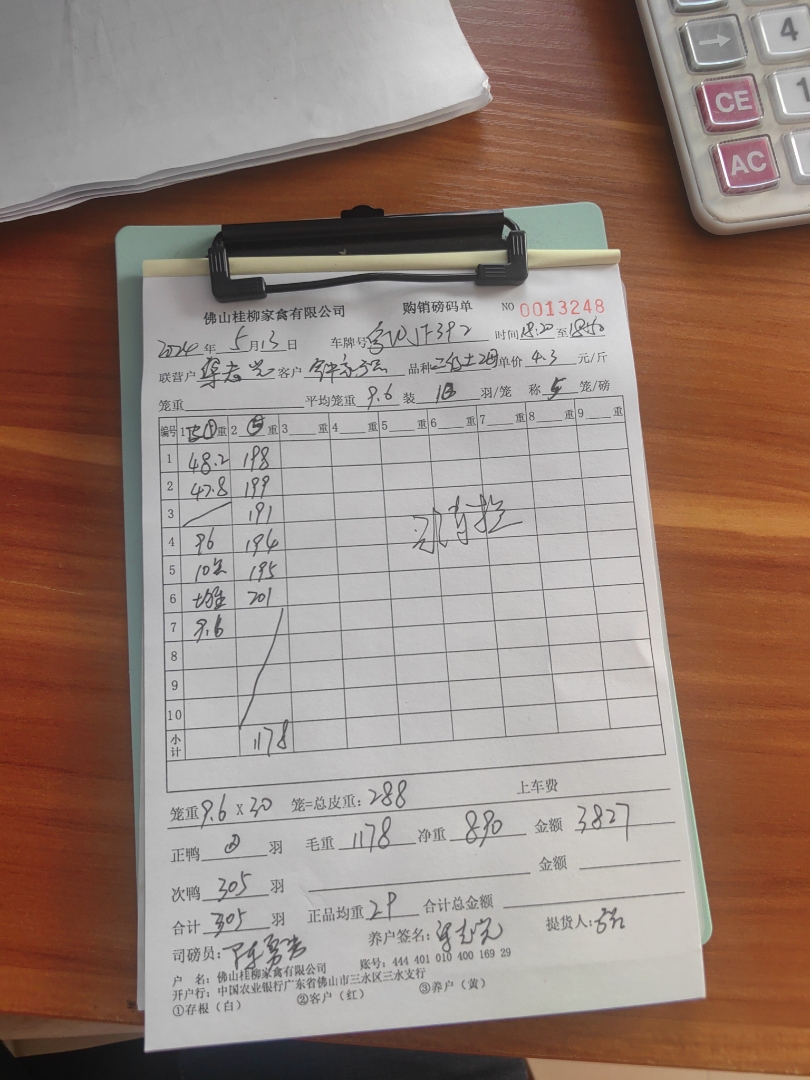 CE
AC
4
1
佛山桂柳家禽有限公司 购销磅码单 NO 0013248
2024年 5月13日 车牌号 JF392 时间18:20至18:40
联营户 客户 品种 单价 4.3 元/斤
笼重 平均笼重 9.6 装 10 羽/笼 称 5 笼/磅
编号 1 皮 重 2 ⑤ 重 3 重 4 重 5 重 6 重 7 重 8 重 9 重
1 48.2 198
2 47.8 199
3 191
4 96 194
5 10笼 195
6 均重 201
7 9.6
8
9
10
小计 1178
笼重 9.6 x 30 笼=总皮重: 288 上车费
正鸭 羽 毛重 1178 净重 890 金额 3827
次鸭 305 羽 金额
合计 305 羽 正品均重 29 合计总金额
司磅员: 养户签名: 提货人:
户 名: 佛山桂柳家禽有限公司 账号: 444 401 010 400 169 29
开户行: 中国农业银行广东省佛山市三水区三水支行
①存根(白) ②客户(红) ③养户(黄)